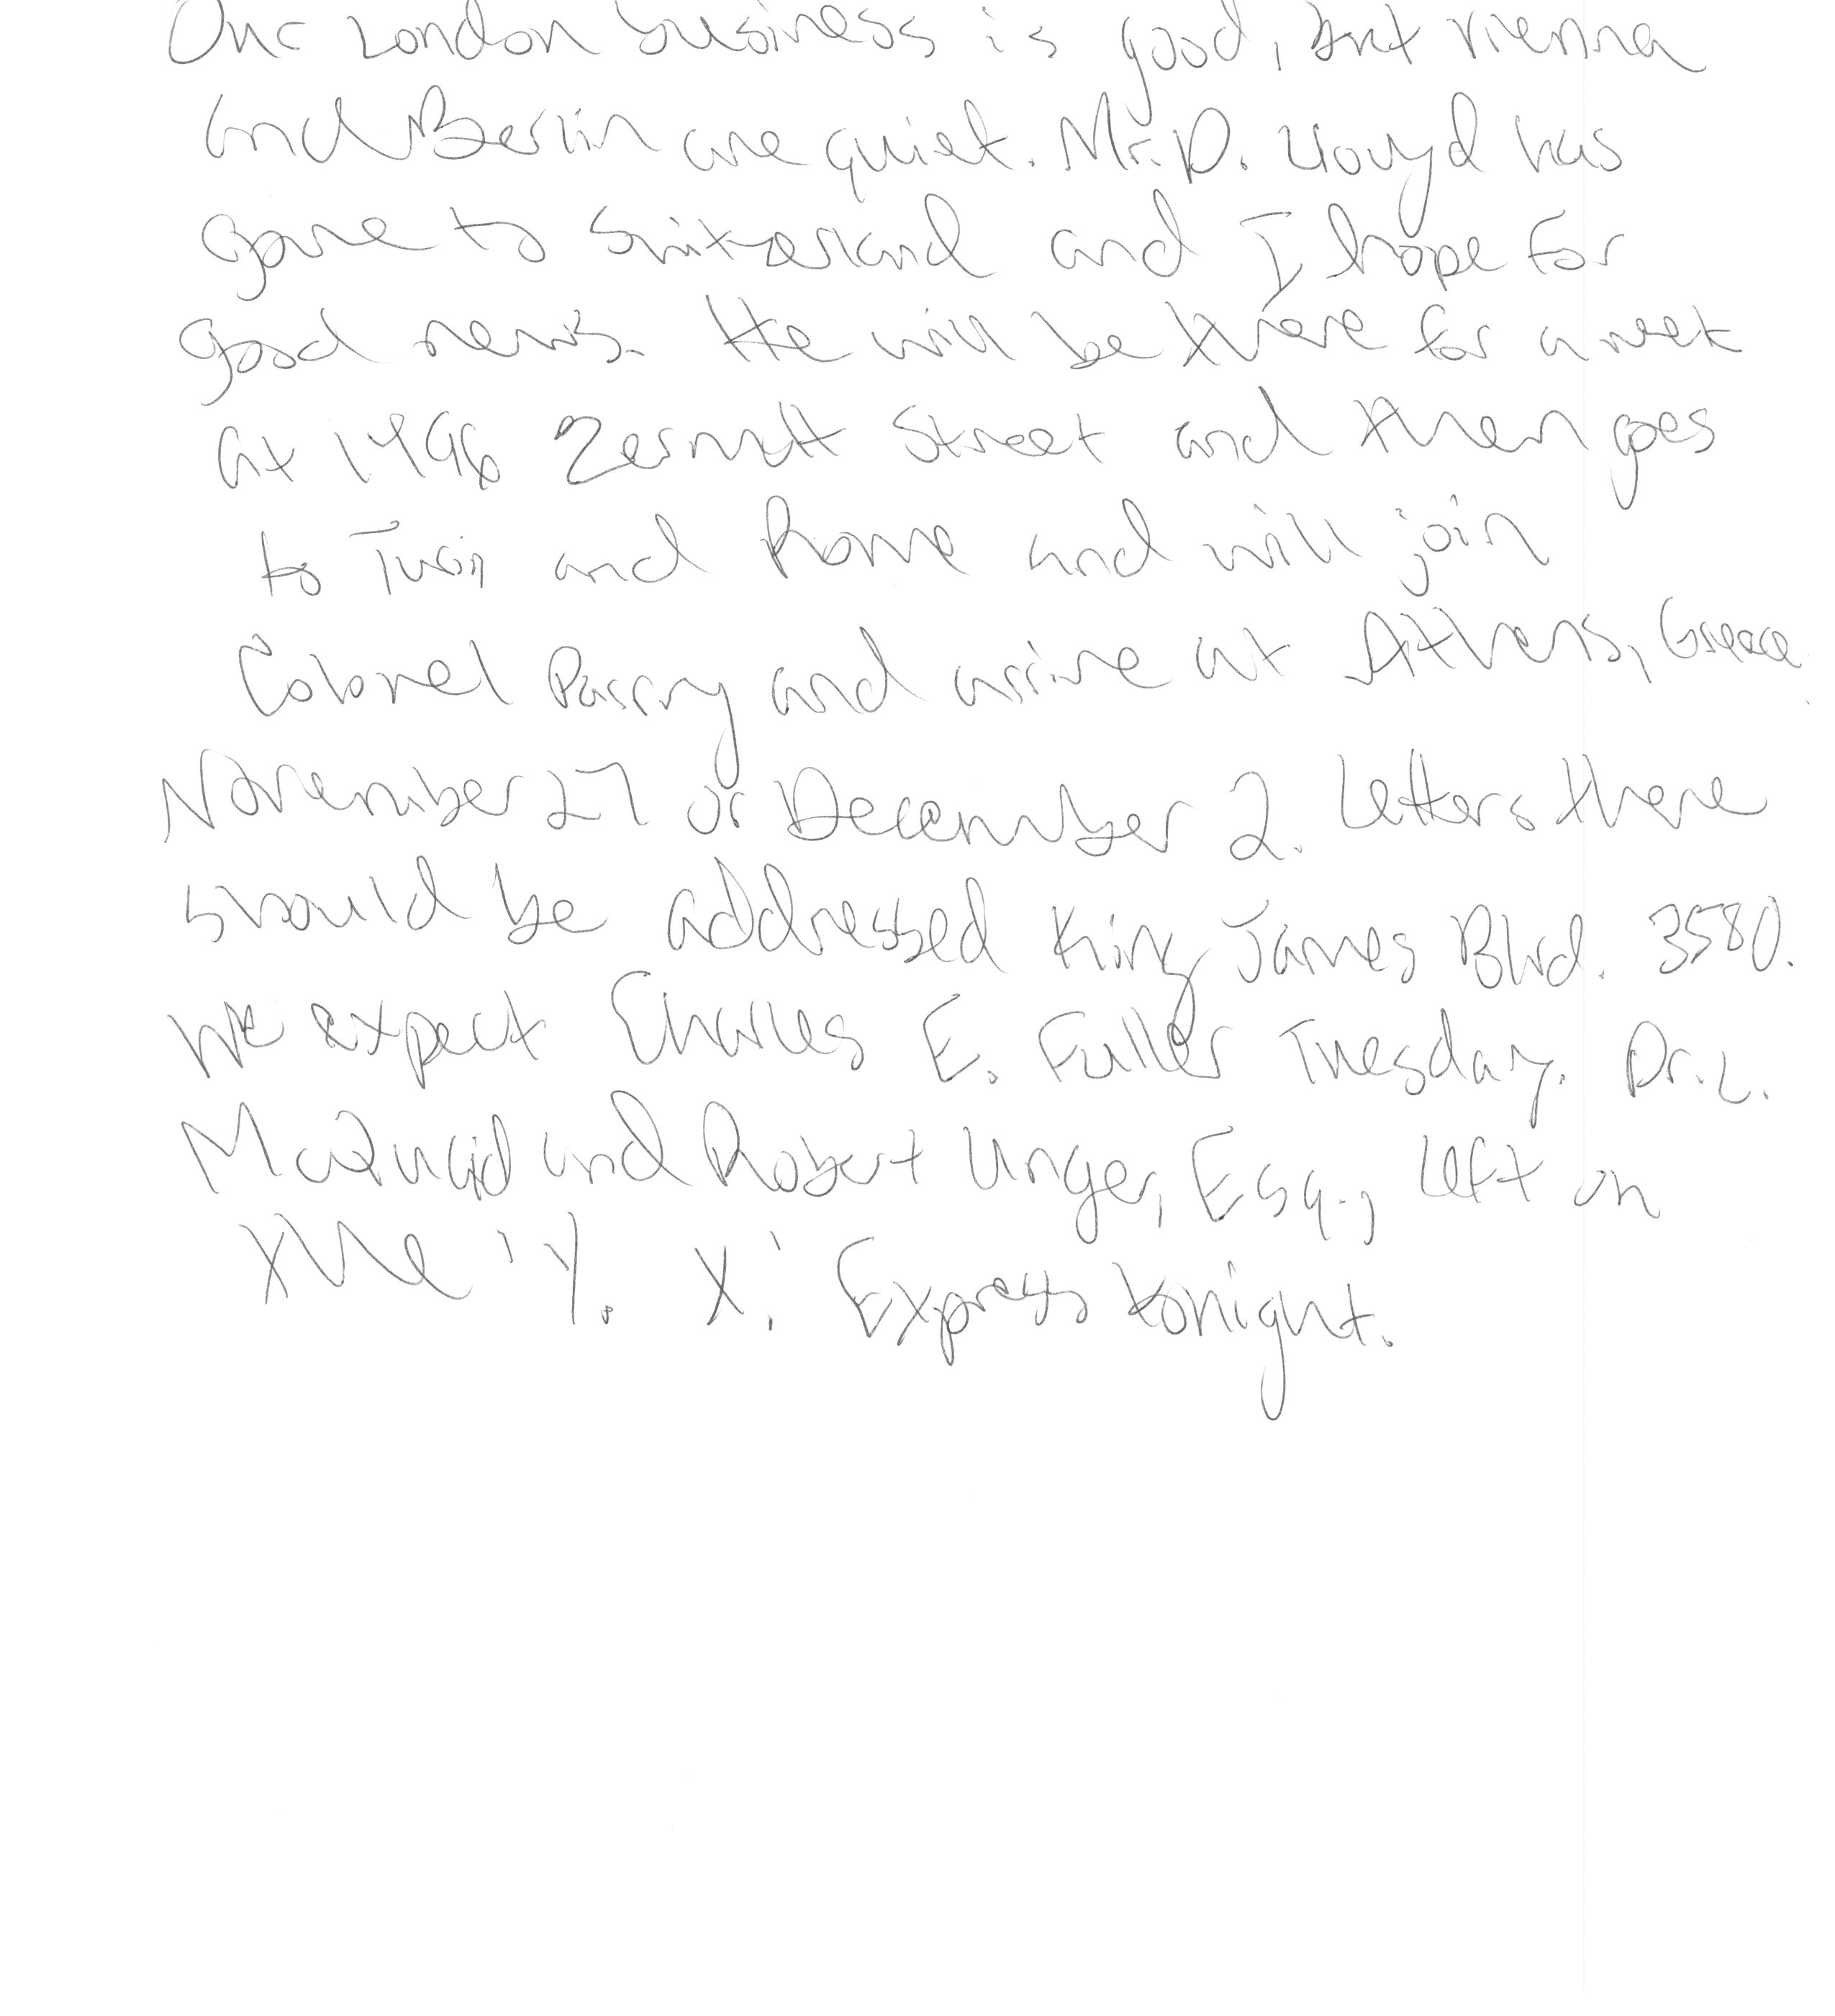 Our London business is good, but Vienna
and Berlin are quiet. Mr. D. Lloyd has
gone to Switzerland and I hope for
good news. He will be there for a week
at 1496 Zermott Street and then goes
to Turin and Rome and will join
Colonel Parry and arrive at Athens, Greece.
November 27 or December 2. Letters there
should be addressed King James Blvd. 3580.
We expect Charles E. Fuller Tuesday. Dr. L.
McQuaid and Robert Unger, Esq., left on
the 'Y. X.' Express tonight.